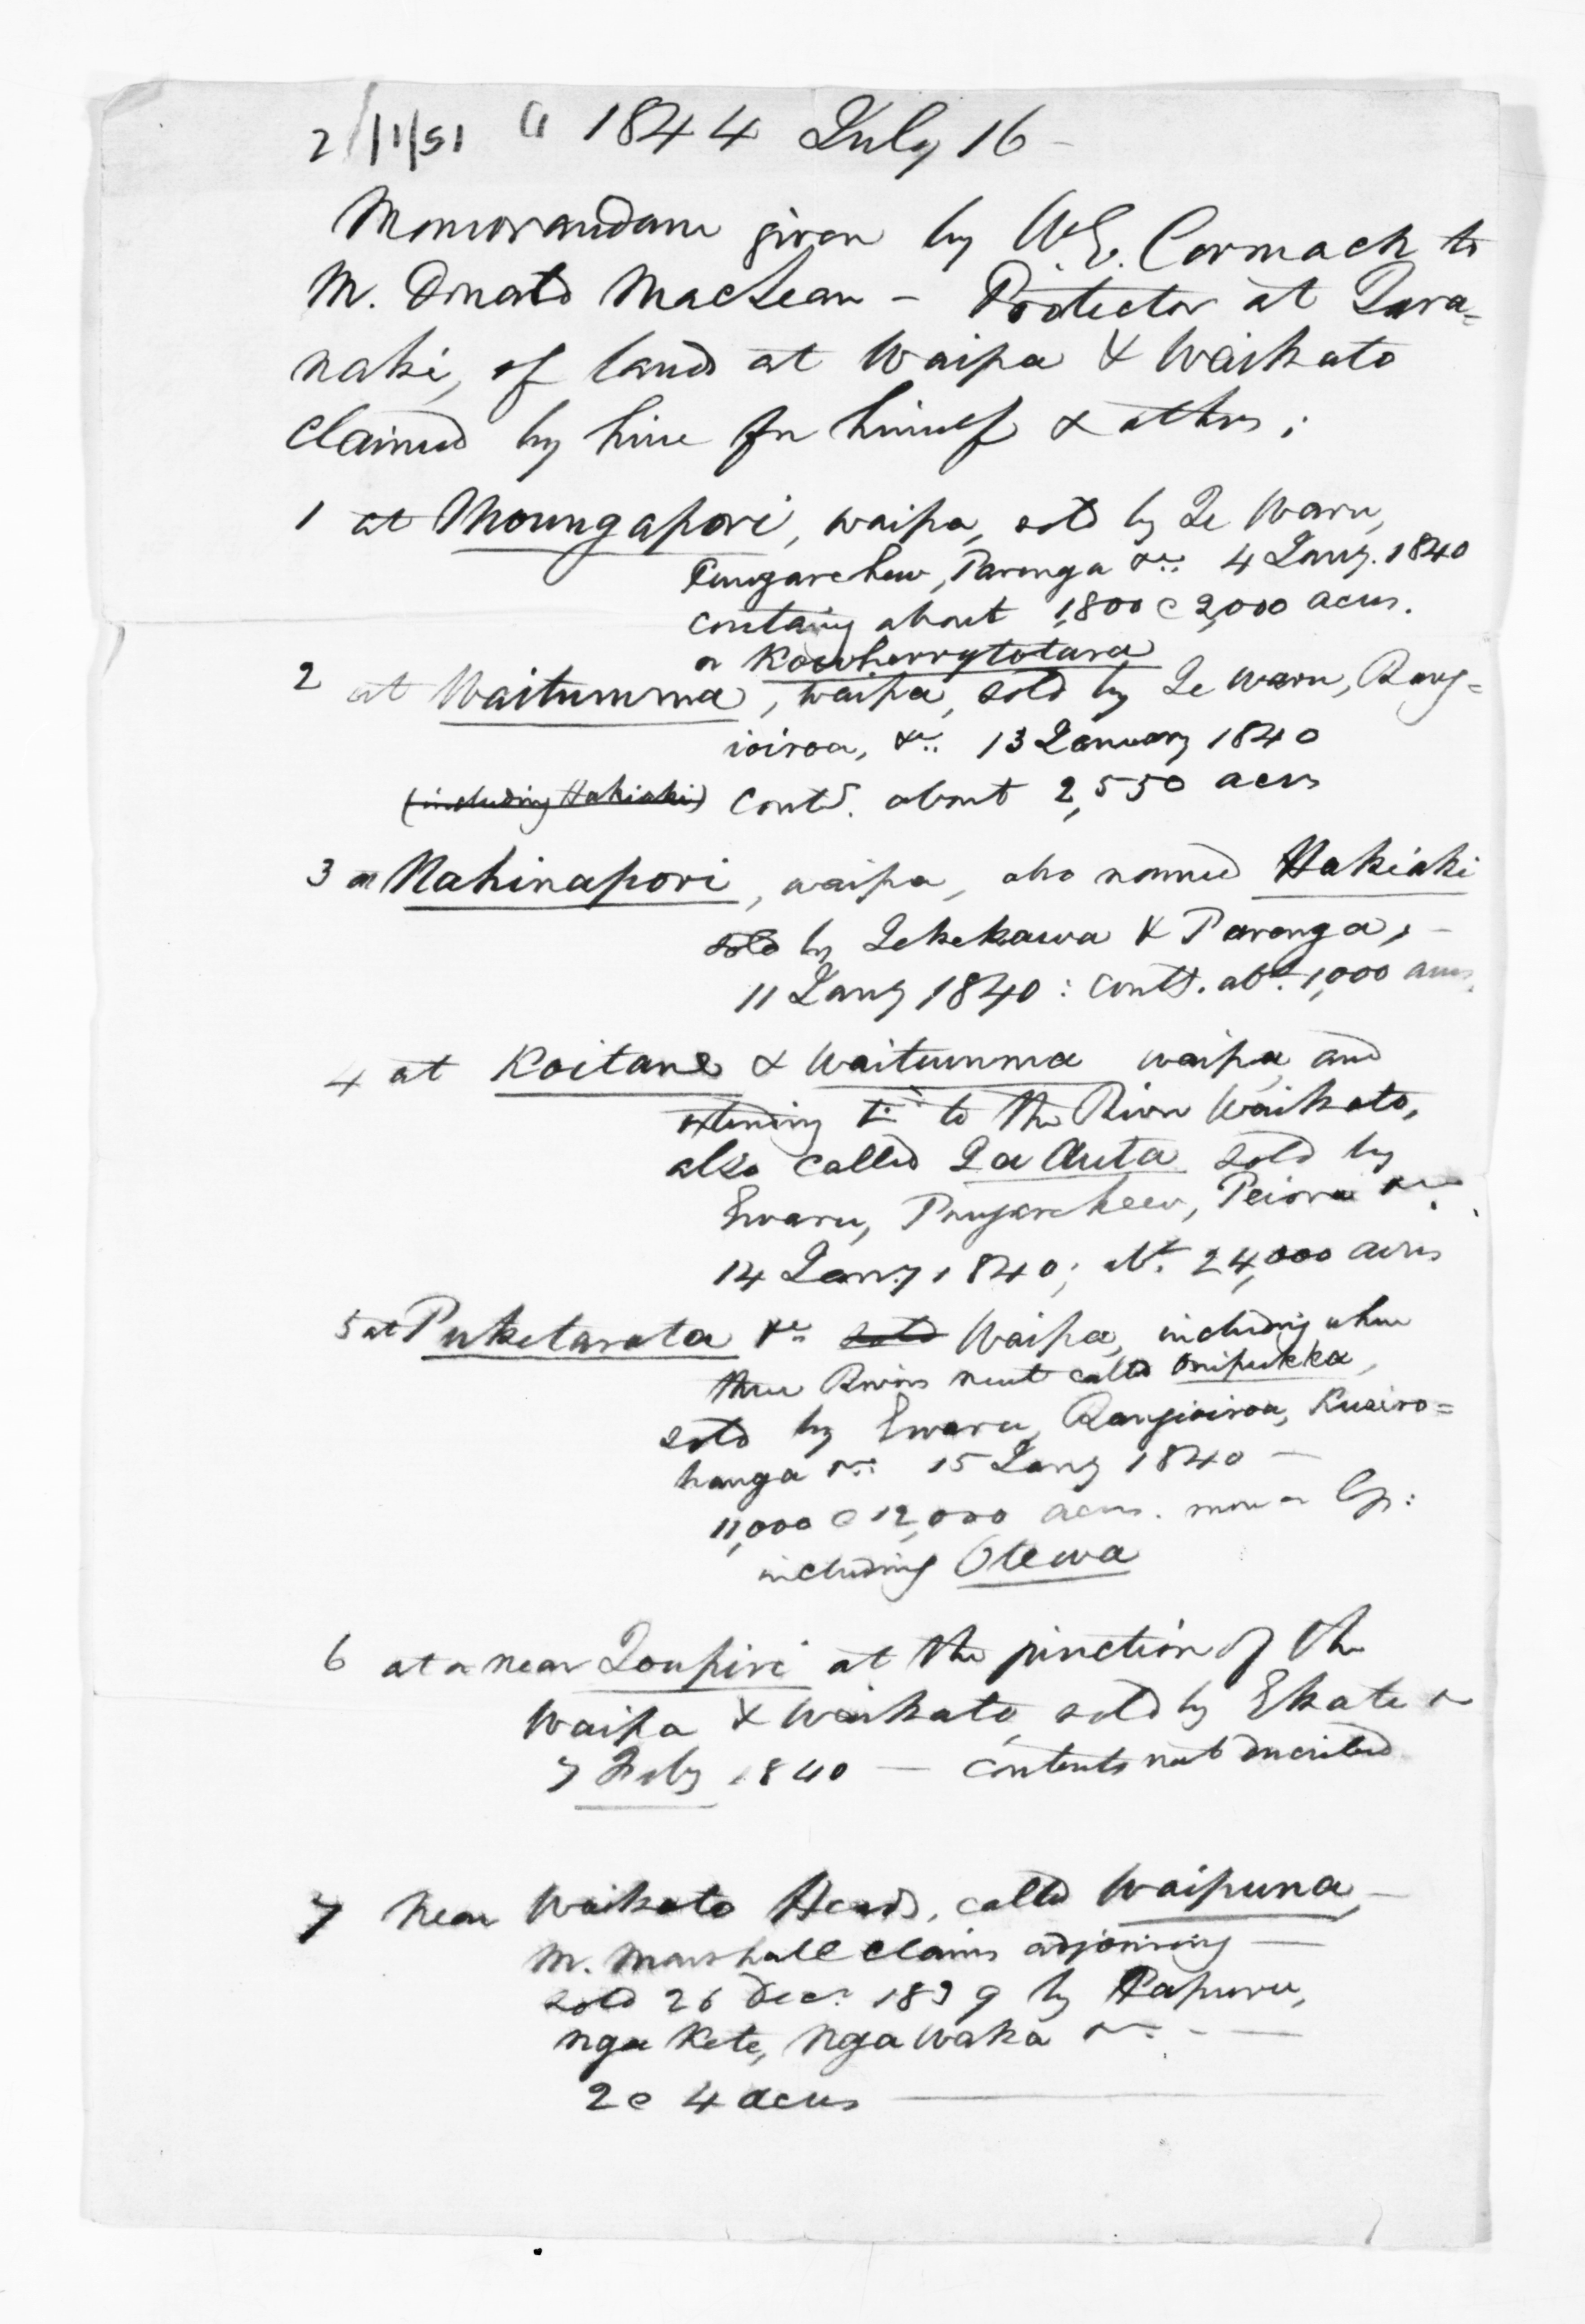 2/11/51 " 1844 July 16 -
Memorandum given by W.E. Cormack to
Mr. Donald MacLean - Protector at Tara=
naki, of land at Waipa & Waikato
claimed by him for himself & others;
1 at Moungapori, Waipa, sold by Te Waru,
Paronga &c: 4 Jany. 1840
containing about 1,800 @ 2,000 acres.
or Kowherrytotara
2 at Waitumma, Waipa, sold by Te Waru, Rang=
ioiroa, &c: 13 January 1840
(including Hakiaki) Contd. about 2,550 acres
3 or Nahinapori, Waipa, also named Hakiaki
sold by Tekekawa & Paronga, -
11 Jany 1840: contt. abt. 1,000 acres,
4 at Koitane & Waitumma Waipa and
extending to the River Waikato,
also called Ta Auta sold by
Ewaru, Peiora &c
14 Jany 1840; abt. 24,000 acres
5 at Puketarata &c sold Waipa, including where
three Rivers meet called Onipukka,
sold by Ewaru, Rangioiroa, Kusiro=
hanga &c: 15 Jany 1840 -
11,000 @ 12,000 acres. more or less:
including Otewa
6 at or near Toupiri at the junction of the
Waipa & Waikato, sold by Ekate &c
7 July 1840 - contents not described
7 Near Waikato Heads, called Waipuna, -
Mr. Marshall claims adjoining -
sold 26 Decr. 1839 by Papuru,
Nga Kete, Nga Waka &c. - -
2 @ 4 acres